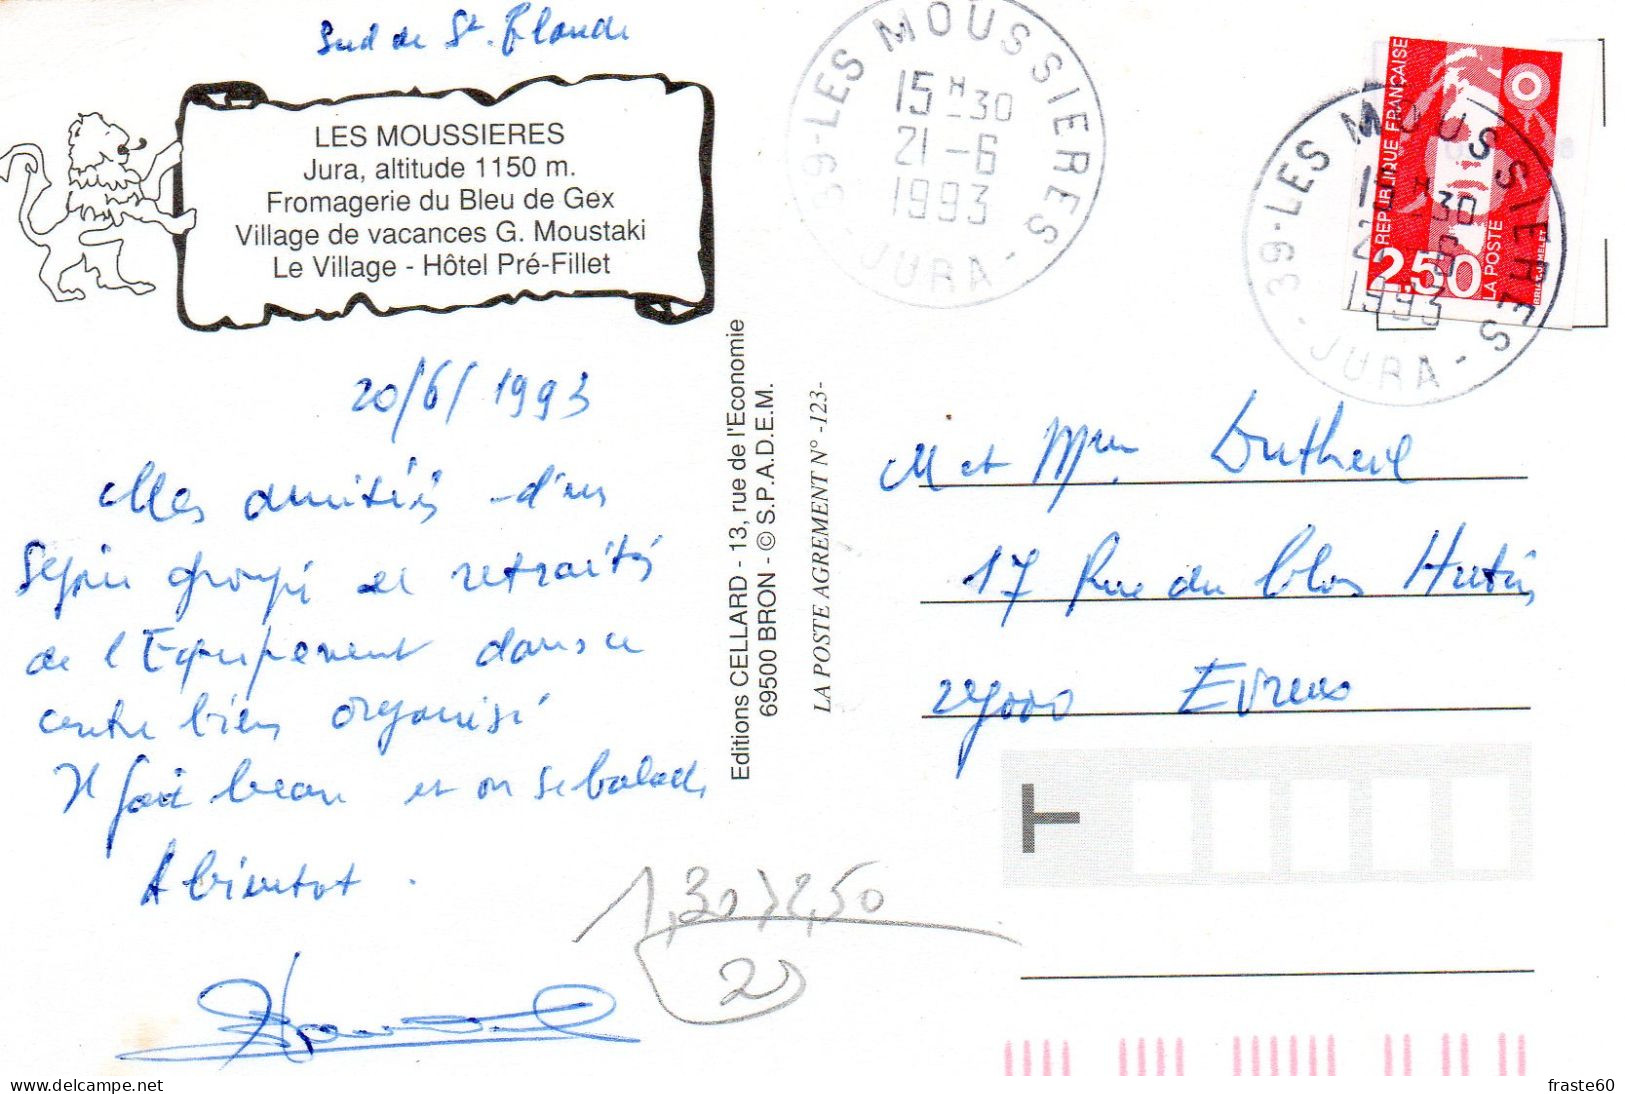 Sud de St. Claude
LES MOUSSIERES
Jura, altitude 1150 m.
Fromagerie du Bleu de Gex
Village de vacances G. Moustaki
Le Village - Hôtel Pré-Fillet
20/6/1993
Mes amitiés d'un
séjour groupé de retraités
de l'Equipement dans ce
centre bien organisé
Il fait beau et on se balade
A bientot.
Editions CELLARD - 13, rue de l'Economie
69500 BRON - © S.P.A.D.E.M.
LA POSTE AGREMENT N° -123-
39-LES MOUSSIERES
15H-30
21-6
1993
-JURA-
REPUBLIQUE FRANÇAISE
2.50
LA POSTE
39-LES MOUSSIERES
15H-30
21-6
1993
-JURA-
M et Mme Dutheil
17 Rue du Clos Hutin
27000 Evreux
T
1,30 > 2,50
2
delcampe.net
fraste60